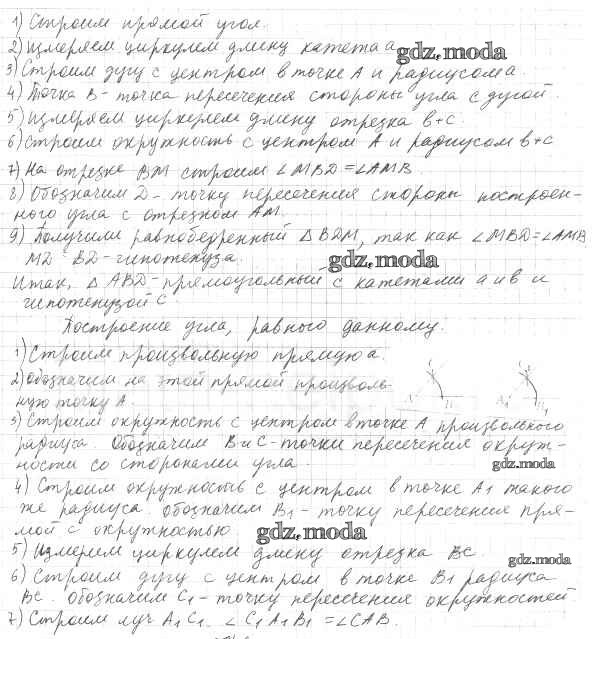 1) Строим прямой угол.
2) Измеряем циркулем длину катета а gdz.moda
3) Строим дугу с центром в точке А и радиусом а.
4) Точка В - точка пересечения стороны угла с дугой.
5) Измеряем циркулем длину отрезка в+с.
6) Строим окружность с центром А и радиусом в+с
7) На отрезке ВМ строим ∠MBD = ∠AMB.
8) Обозначим D - точку пересечения стороны построен-
ного угла с отрезком АМ.
9) Получили равнобедренный △ BDM, так как ∠MBD = ∠AMB
MD = BD - гипотенуза. gdz.moda
Итак, △ ABD - прямоугольный с катетами а и в и
гипотенузой с
Построение угла, равного данному.
1) Строим произвольную прямую а.
2) Обозначим на этой прямой произволь-
ную точку А.
3) Строим окружность с центром в точке А произвольного
радиуса. Обозначим В и С - точки пересечения окруж-
ности со сторонами угла gdz.moda
4) Строим окружность с центром в точке А1 такого
же радиуса. обозначим В1 - точку пересечения пря-
мой с окружностью. gdz.moda
5) Измерим циркулем длину отрезка ВС. gdz.moda
6) Строим дугу с центром в точке В1 радиуса
ВС. обозначим С1 - точку пересечения окружностей
7) Строим луч А1С1. ∠ С1А1В1 = ∠САВ.